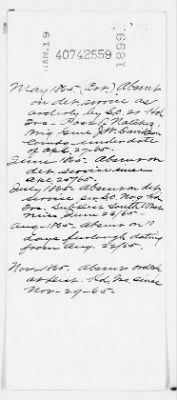 JAN. 19
40742559
1899
May 1865. Absent
on det. service as
orderly by S.O. 20 Hd
Qrs. Post of Natchez
Brig Genl J.W. Davidson
Comdg. under date
of Apl 27-65.
June 1865. Absent on
det. service since
Apl 25/65.
July 1865. Absent on det.
service Hd
Qrs. South West
Miss June 26/65.
Aug. 1865. Absent on 10
days furlough dating
from Aug. 22/65.
Nov. 1865. Absent
Hd. since
Nov. 29-65.